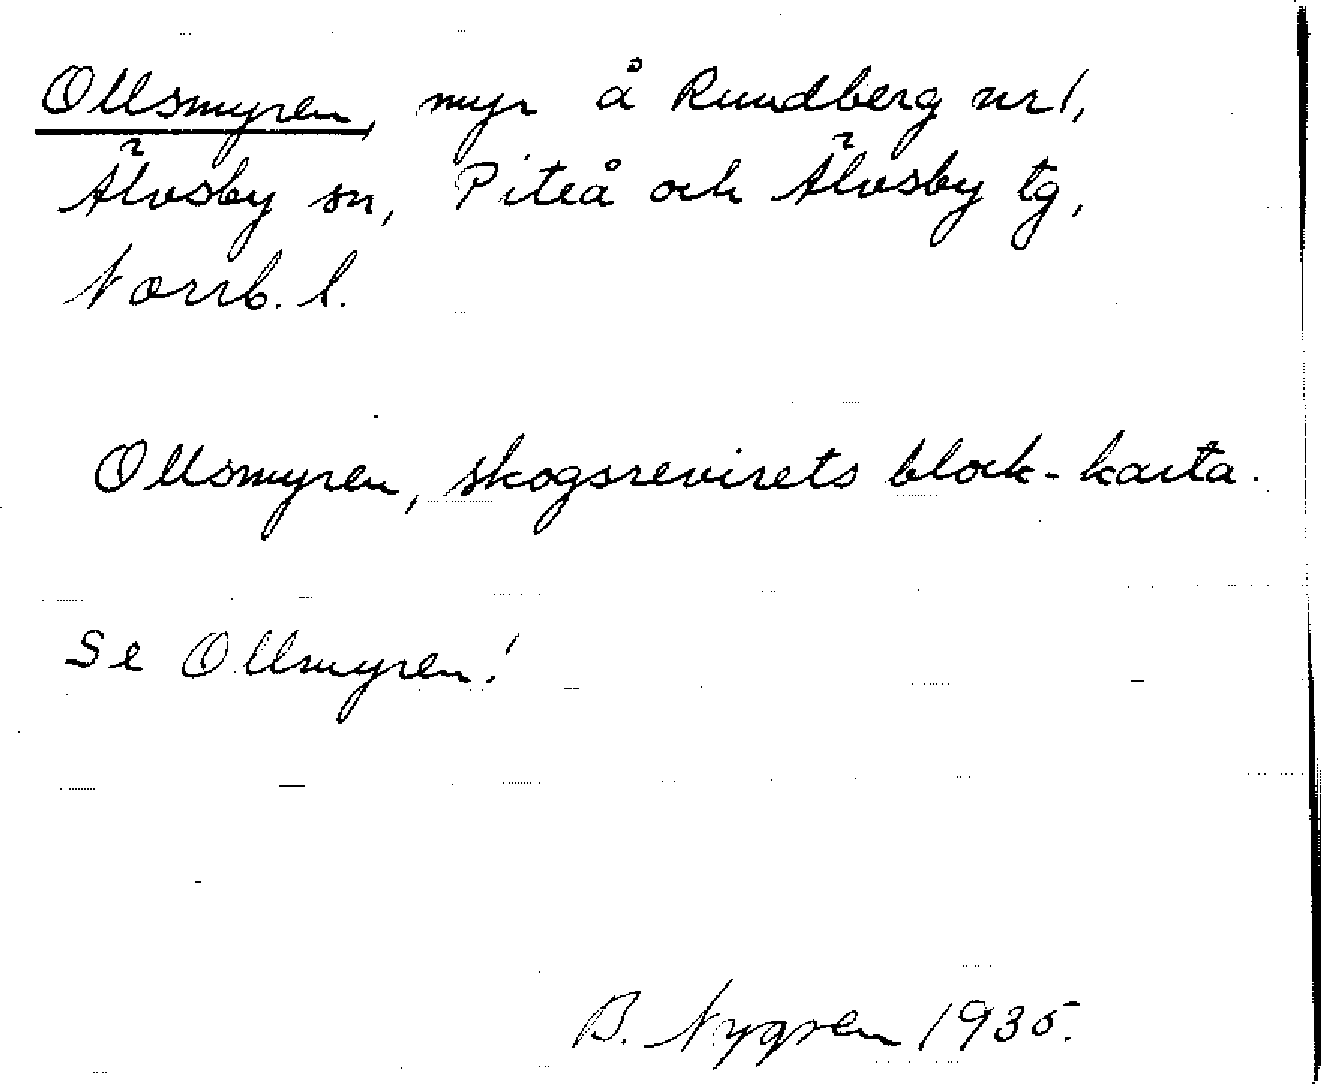 Ollsmyren, myr å Rundberg nr 1,
Älvsby sn, Piteå och Älvsby tg,
Norrb. l.
Ollsmyren, skogsrevirets block-karta.
Se Ollmyren!
B. Nygren 1935.